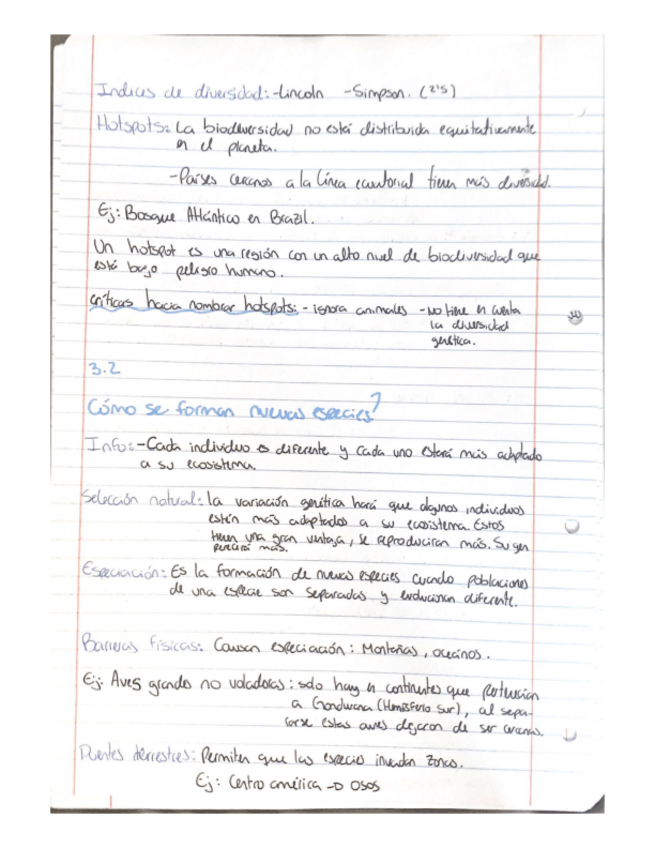 Indices de diversidad: -Lincoln -Simpson. (2.5)
Hotspots: La biodiversidad no está distribuida equitativamente
en el planeta.
-Países cercanos a la línea ecuatorial tienen más diversidad.
Ej: Bosque Atlántico en Brazil.
Un hotspot es una región con un alto nivel de biodiversidad que
está bajo peligro humano.
críticas hacia nombrar hotspots: - ignora animales - no tiene en cuenta
la diversidad
genética.
3.2
Cómo se forman nuevas especies?
Info: -Cada individuo es diferente y cada uno estará más adaptado
a su ecosistema.
Selección natural: la variación genética hará que algunos individuos
estén más adaptados a su ecosistema. Estos
tienen una gran ventaja, se reproduciran más. Su gen
más.
Especiación: Es la formación de nuevas especies cuando poblaciones
de una especie son separadas y evolucionan diferente.
Barreras físicas: Causan especiación: Montañas, océanos.
Ej: Aves grandes no voladoras: solo hay en continentes que pertenecian
a Gondwana (Hemisferio sur), al sepa-
rarse estas aves dejaron de ser cercanas.
Puentes terrestres: Permiten que las especies invadan zonas.
Ej: Centro américa -D OSOS